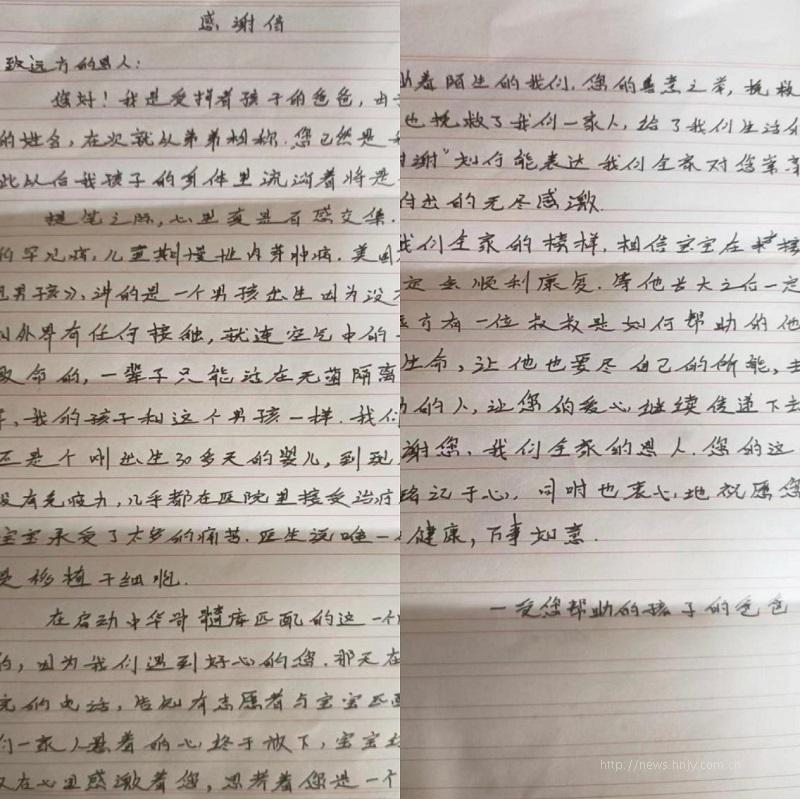 感谢信
致远方的恩人:
您好!我是受捐者孩子的爸爸,由于
的姓名,在次就从弟弟相称.您已然是
此以后我孩子的身体里流淌着将是
提笔之际,心里真是百感交集.
的罕见病,儿童期慢性肉芽肿病.美国
男孩》,讲的是一个男孩出生因为没
外界有任何接触,就连空气中的一
致命的,一辈子只能活在无菌隔离
我的孩子和这个男孩一样.我们
还是个刚出生30多天的婴儿,到现
没有免疫力,几乎都在医院里接受治疗
宝宝承受了太多的痛苦.医生说唯一
是移植干细胞.
在启动中华骨髓库匹配的这一个
的,因为我们遇到好心的您.那天在
的电话,告知有志愿者与宝宝匹配
们一家人悬着的心终于放下,宝宝
又在心里感激着您,思考着您是一个
助着陌生的我们.您的善意之举,挽救
也挽救了我们一家人,给了我们生活
谢"刘行能表达我们全家对您
付出的无尽感激.
我们全家的榜样,相信宝宝在
定会顺利康复.等他长大之后一定
远方有一位叔叔是如何帮助的他
生命,让他也要尽自己的所能,去
的人,让您的爱心继续传递下去
谢您,我们全家的恩人.您的这
铭记于心,同时也衷心地祝愿您
健康,万事如意.
一受您帮助的孩子的爸爸
http://news.hnjy.com.cn